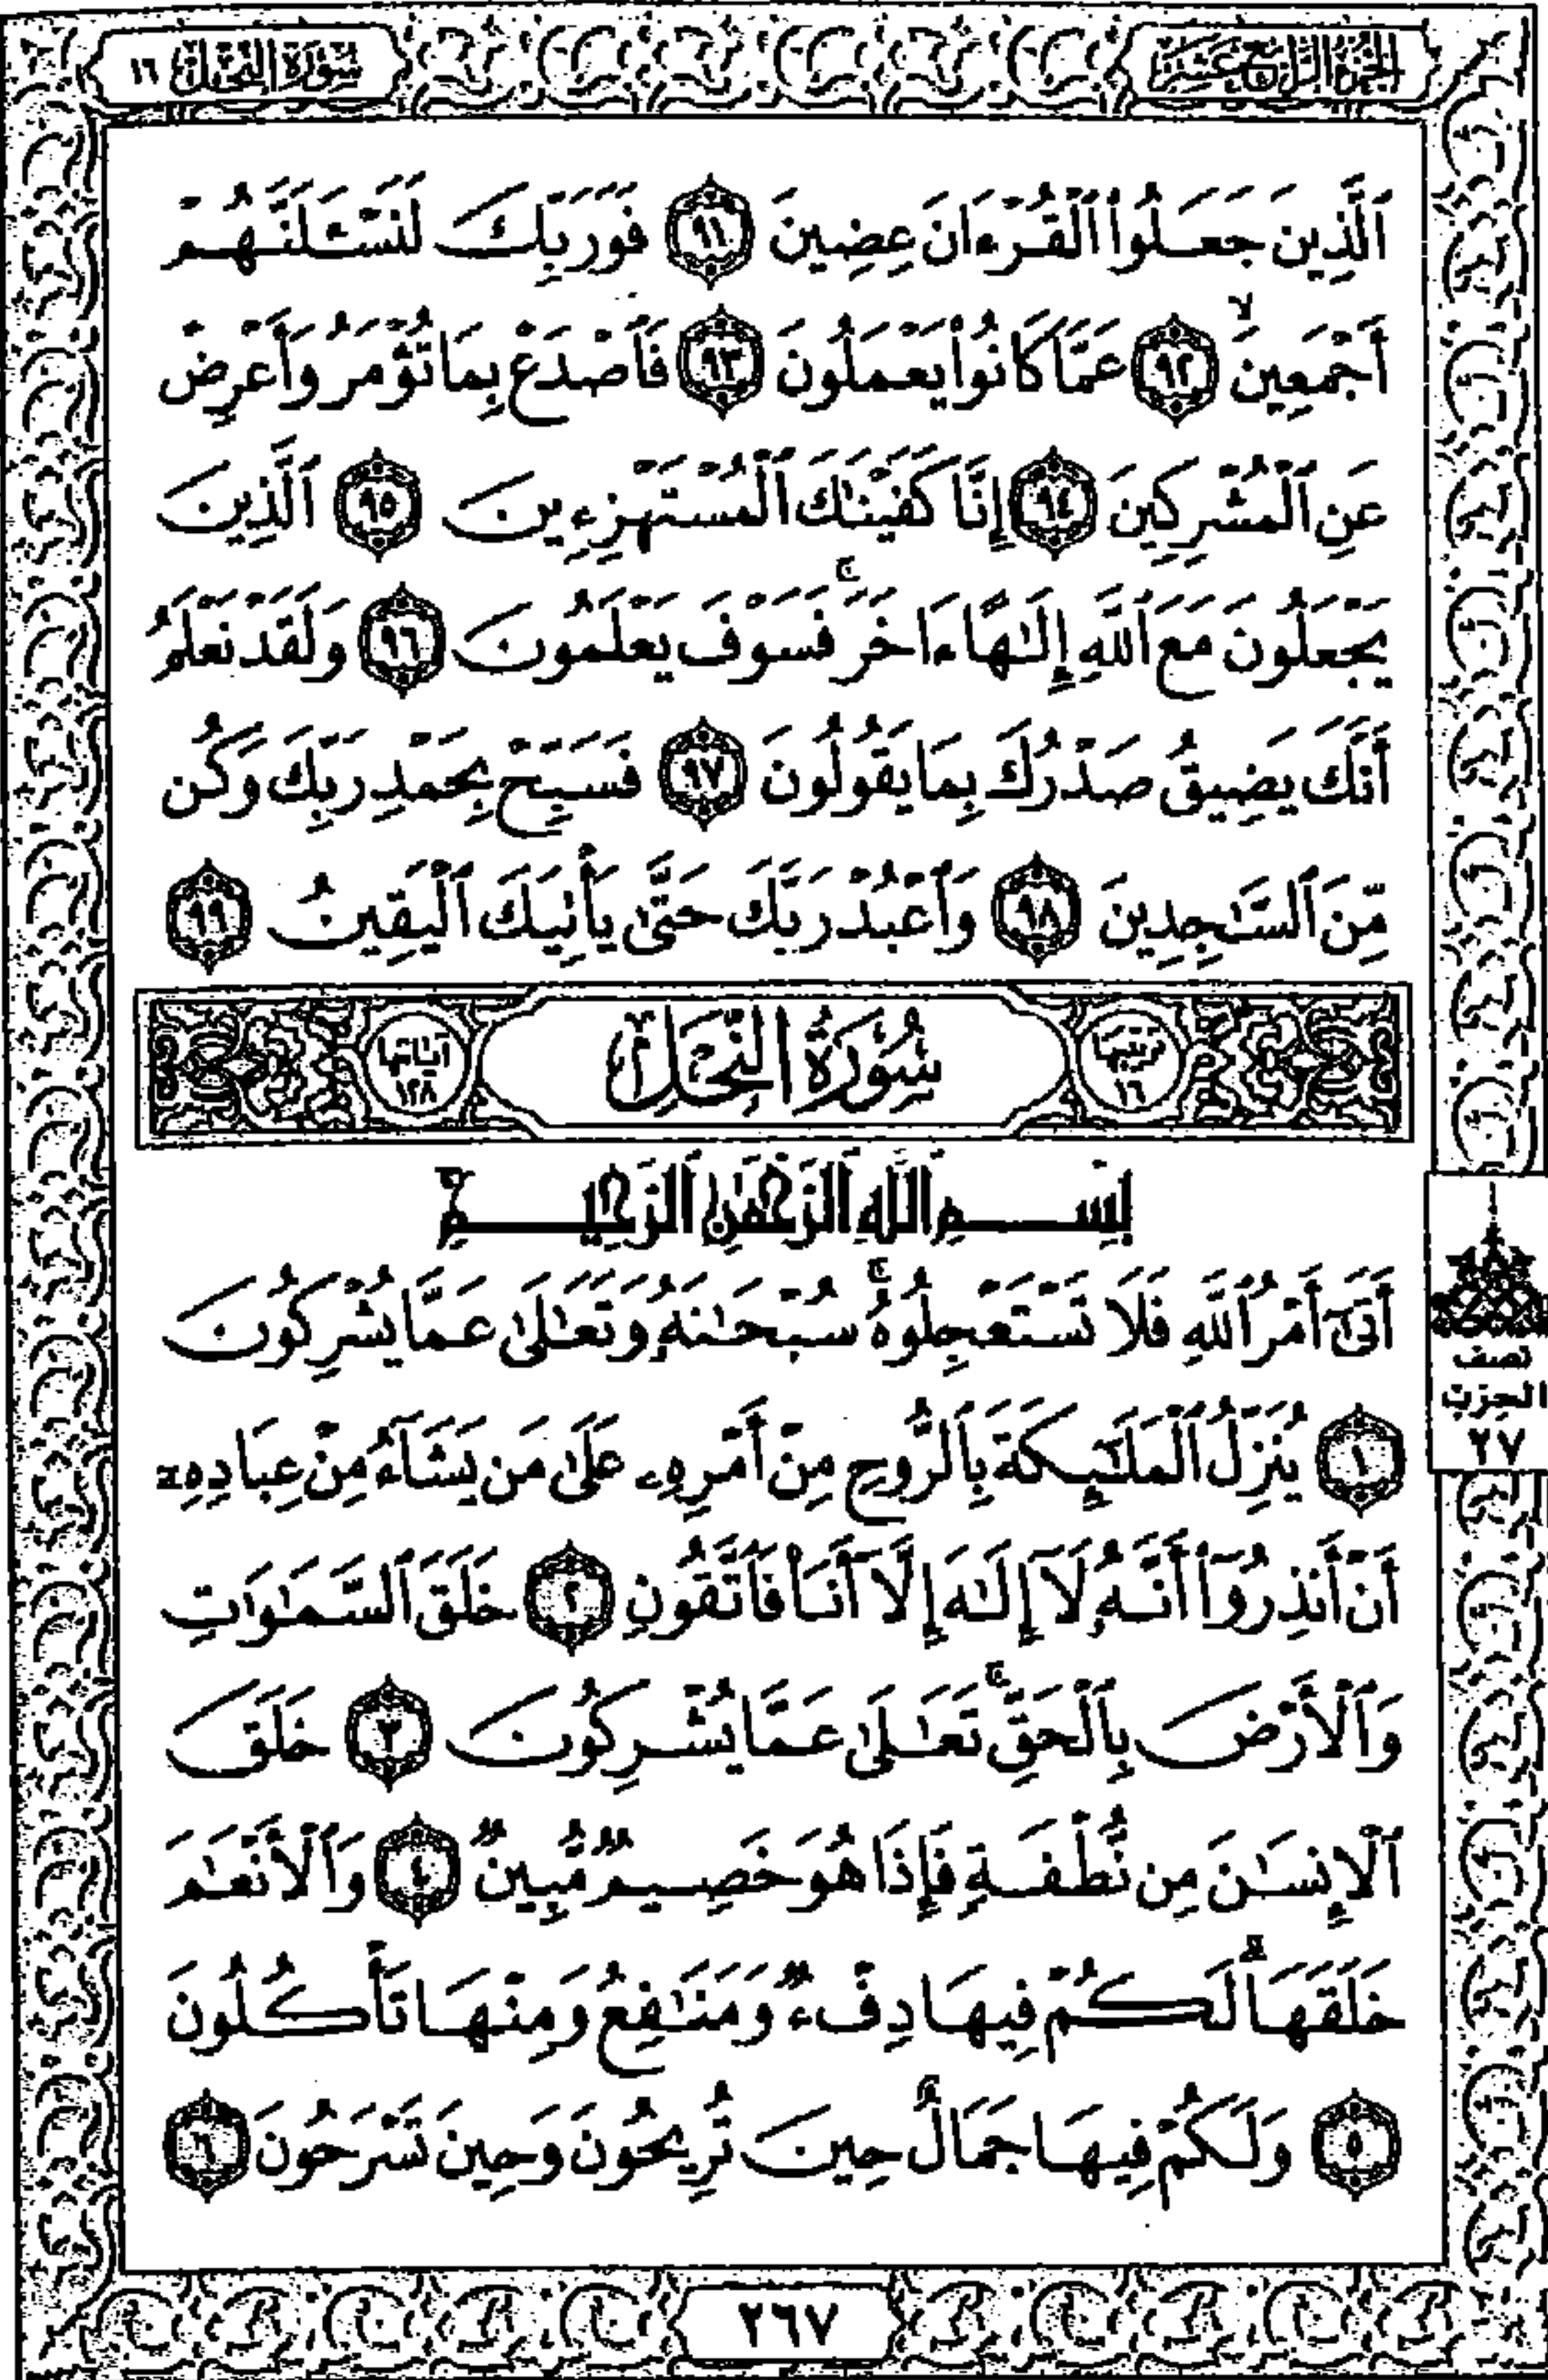 الجزء الرابع عشر
سورة النحل ١٦
ٱلَّذِينَ جَعَلُوا۟ ٱلْقُرْءَانَ عِضِينَ ٩١ فَوَرَبِّكَ لَنَسْـَٔلَنَّهُمْ
أَجْمَعِينَ ۙ ٩٢ عَمَّا كَانُوا۟ يَعْمَلُونَ ٩٣ فَٱصْدَعْ بِمَا تُؤْمَرُ وَأَعْرِضْ
عَنِ ٱلْمُشْرِكِينَ ٩٤ إِنَّا كَفَيْنَٰكَ ٱلْمُسْتَهْزِءِينَ ٩٥ ٱلَّذِينَ
يَجْعَلُونَ مَعَ ٱللَّهِ إِلَٰهًا ءَاخَرَ ۚ فَسَوْفَ يَعْلَمُونَ ٩٦ وَلَقَدْ نَعْلَمُ
أَنَّكَ يَضِيقُ صَدْرُكَ بِمَا يَقُولُونَ ٩٧ فَسَبِّحْ بِحَمْدِ رَبِّكَ وَكُن
مِّنَ ٱلسَّٰجِدِينَ ٩٨ وَٱعْبُدْ رَبَّكَ حَتَّىٰ يَأْتِيَكَ ٱلْيَقِينُ ٩٩
ترتيبها ١٦ سُورَةُ النَّحْلِ آياتها ١٢٨
بِسْمِ ٱللَّهِ ٱلرَّحْمَٰنِ ٱلرَّحِيمِ
أَتَىٰٓ أَمْرُ ٱللَّهِ فَلَا تَسْتَعْجِلُوهُ ۚ سُبْحَٰنَهُۥ وَتَعَٰلَىٰ عَمَّا يُشْرِكُونَ
١ يُنَزِّلُ ٱلْمَلَٰٓئِكَةَ بِٱلرُّوحِ مِنْ أَمْرِهِۦ عَلَىٰ مَن يَشَآءُ مِنْ عِبَادِهِۦٓ
أَنْ أَنذِرُوٓا۟ أَنَّهُۥ لَآ إِلَٰهَ إِلَّآ أَنَا۠ فَٱتَّقُونِ ٢ خَلَقَ ٱلسَّمَٰوَٰتِ
وَٱلْأَرْضَ بِٱلْحَقِّ ۚ تَعَٰلَىٰ عَمَّا يُشْرِكُونَ ٣ خَلَقَ
ٱلْإِنسَٰنَ مِن نُّطْفَةٍ فَإِذَا هُوَ خَصِيمٌ مُّبِينٌ ٤ وَٱلْأَنْعَٰمَ
خَلَقَهَا ۗ لَكُمْ فِيهَا دِفْءٌ وَمَنَٰفِعُ وَمِنْهَا تَأْكُلُونَ
٥ وَلَكُمْ فِيهَا جَمَالٌ حِينَ تُرِيحُونَ وَحِينَ تَسْرَحُونَ ٦
نصف
الحزب
٢٧
٢٦٧